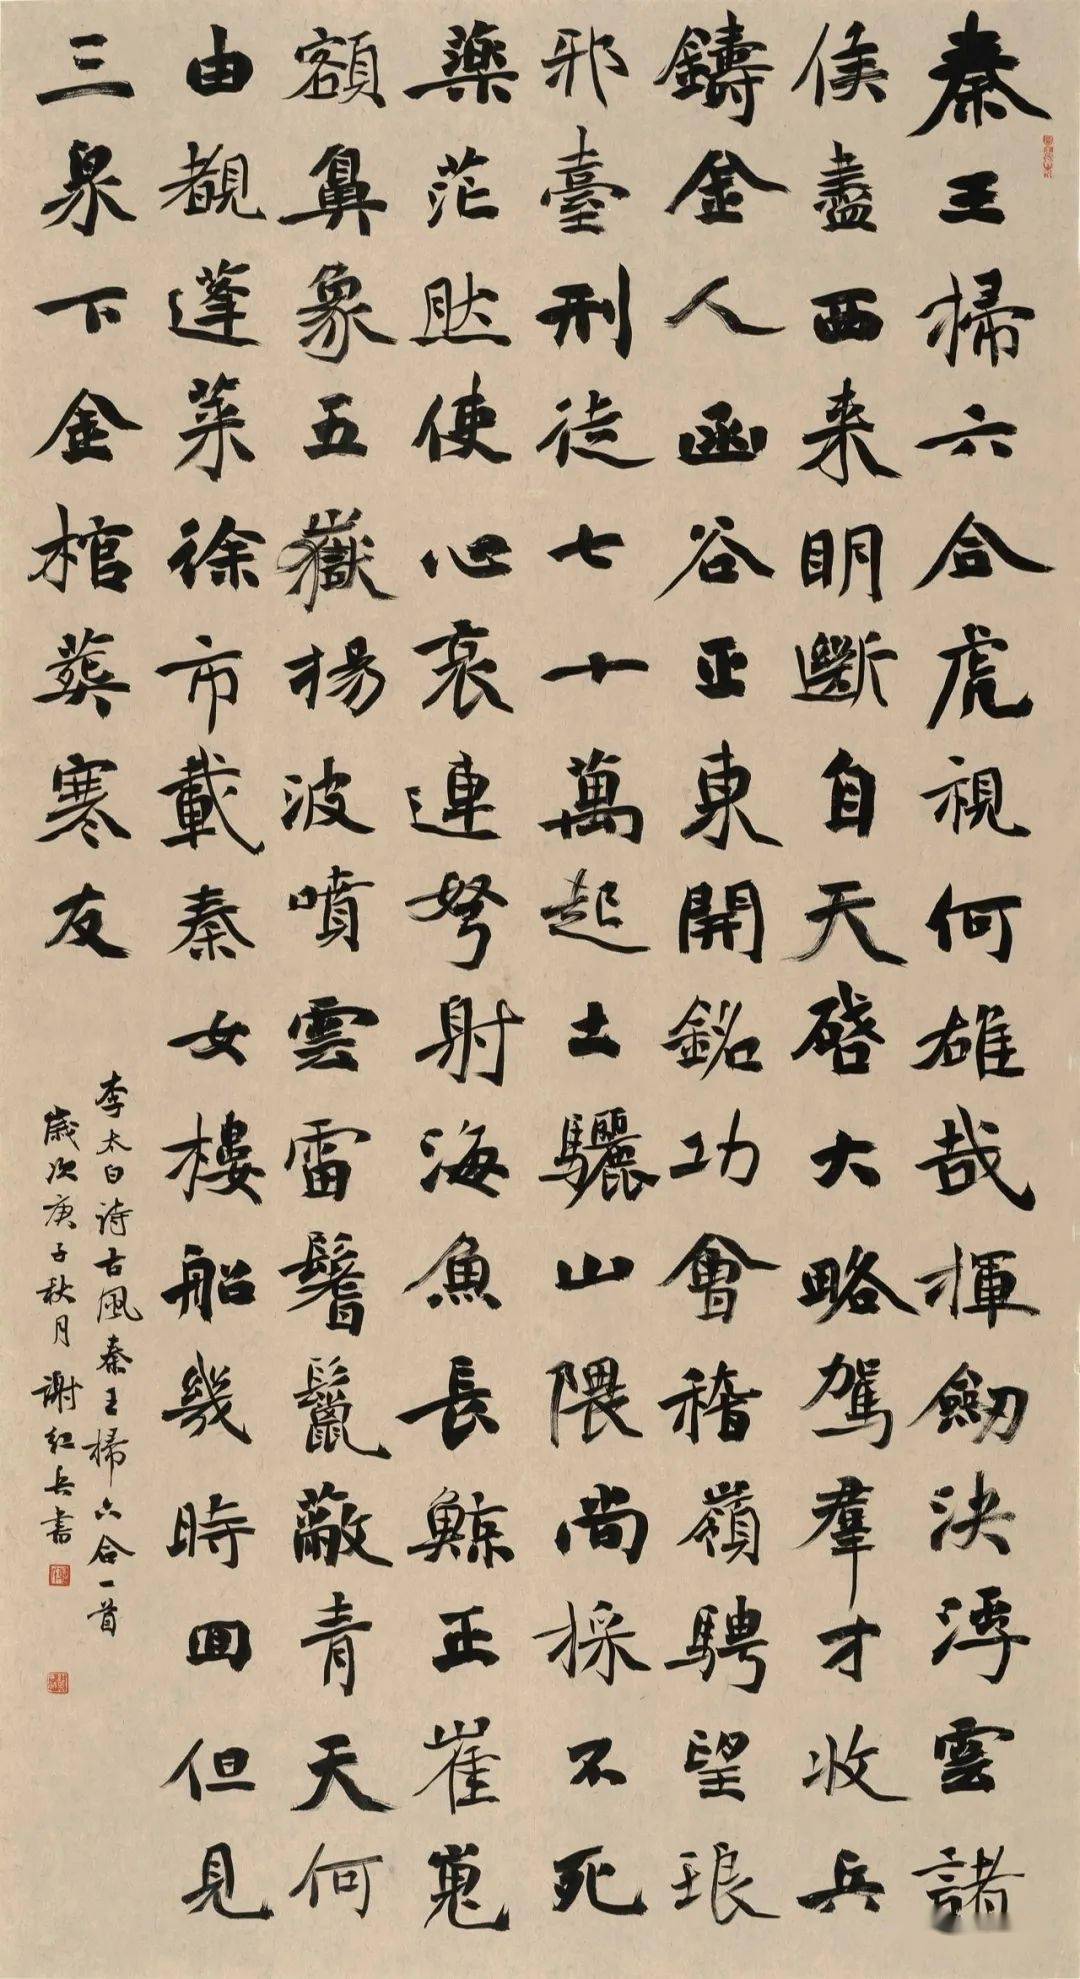 秦王掃六合虎視何雄哉揮劒決浮雲諸
侯盡西来明斷自天啓大略駕羣才收兵
鑄金人函谷正東開銘功會稽嶺騁望琅
邪臺刑徒七十萬起土驪山隈尚採不死
藥茫然使心哀連弩射海魚長鯨正崔嵬
額鼻象五嶽揚波噴雲雷鬐鬣蔽青天何
由覩蓬萊徐市載秦女樓船幾時回但見
三泉下金棺葬寒友
李太白詩古風秦王掃六合一首
歲次庚子秋月謝紅兵書